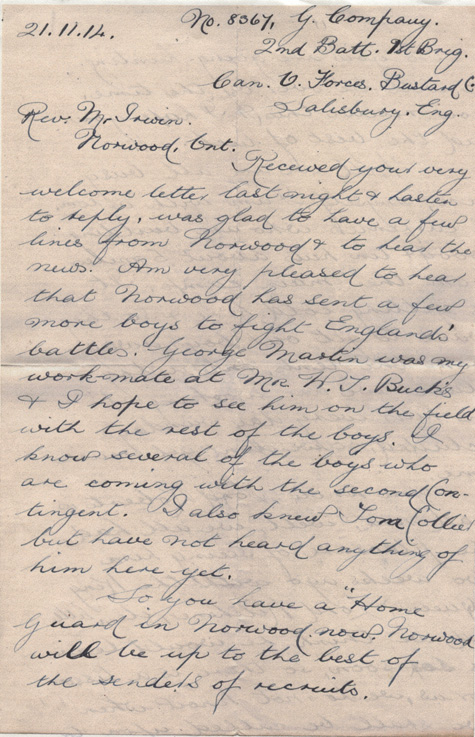 21.11.14. No. 8367, G. Company.
2nd Batt. 1st Brig.
Can. O. Forces. Bustard C
Salisbury. Eng.
Rev. Mr Irwin.
Norwood, Ont.
Received your very
welcome letter last night & hasten
to reply, was glad to have a few
lines from Norwood & to hear the
news. Am very pleased to hear
that Norwood has sent a few
more boys to fight England's
battles. George Martin was my
work-mate at Mr. W. J. Buck's
& I hope to see him on the field
with the rest of the boys. I
know several of the boys who
are coming with the second Con-
tingent. I also knew Tom Collie
but have not heard anything of
him here yet.
So you have a "Home
Guard in Norwood now. Norwood
will be up to the best of
the senders of recruits.